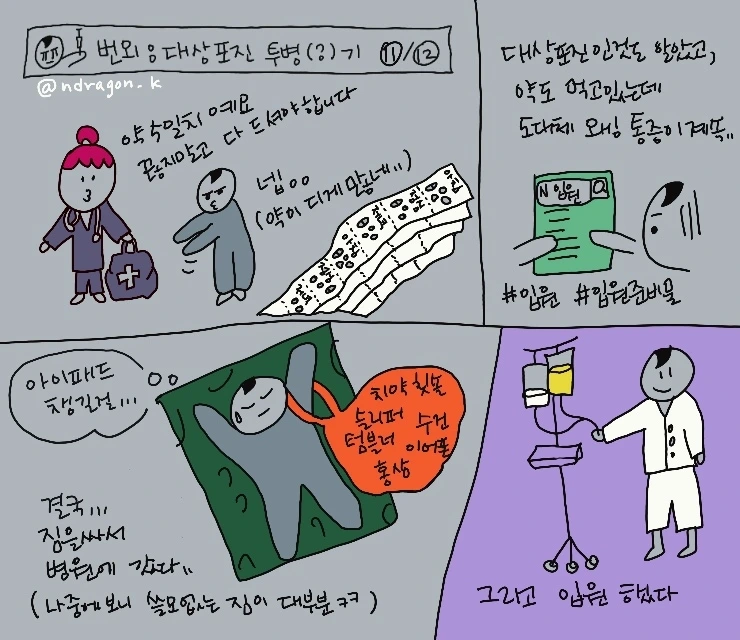 번외 : 대상포진 투병(?)기 11/12
@ndragon.k
약 5일치 예요
끊지말고 다 드셔야 합니다
넵..
(약이 디게 많네..)
아침
점심
저녁
대상포진인것도 알았고,
약도 먹고있는데
도대체 왜 통증이 계속..
N 입원
#입원 #입원준비물
아이패드
챙길걸...
치약 칫솔
슬리퍼 수건
텀블러 이어폰
홍삼
결국...
짐을싸서
병원에 갔다..
(나중에보니 쓸모없는 짐이 대부분 ㅋㅋ)
그라고 입원 했다